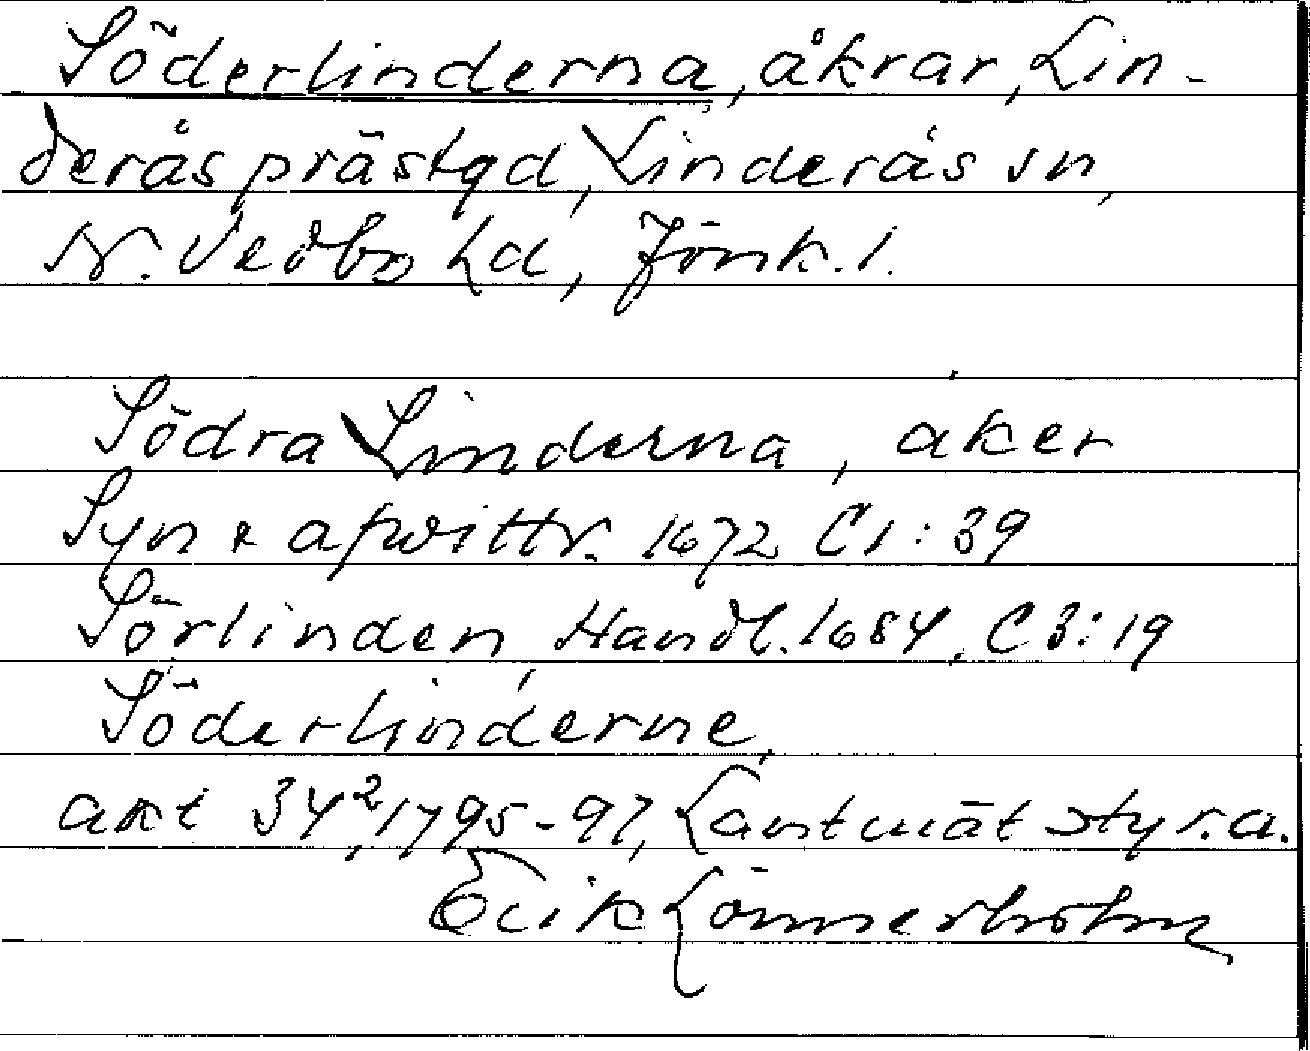 Söderlinderna, åkrar, Lin-
derås prästgd, Linderås sn,
N. Vedbo hd, Jönk. l.
Södra Linderna, åker
Syn & afwittr. 1672 C1:39
Sörlinden, Handl. 1684, C3:19
Söderlinderne,
akt 34², 1795-97, Lantmät styr. a.
Erik Lönnerholm